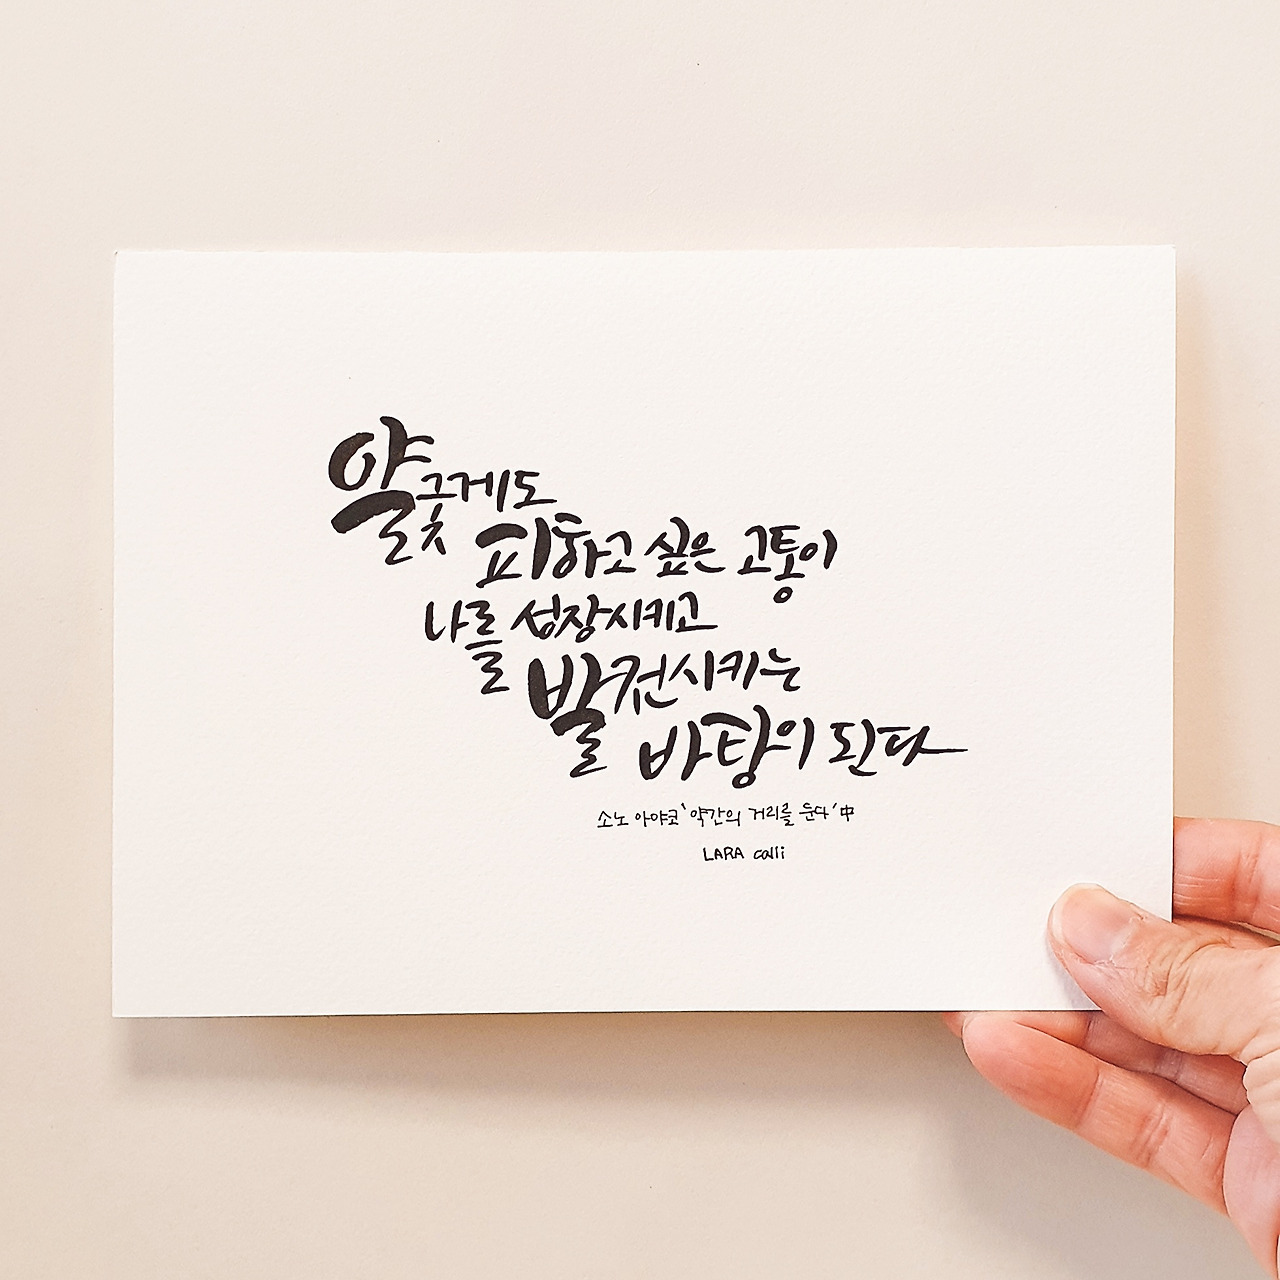 얄궂게도
피하고 싶은 고통이
나를 성장시키고
발전시키는
바탕이 된다
소노 아야코 '약간의 거리를 둔다' 中
LARA calli